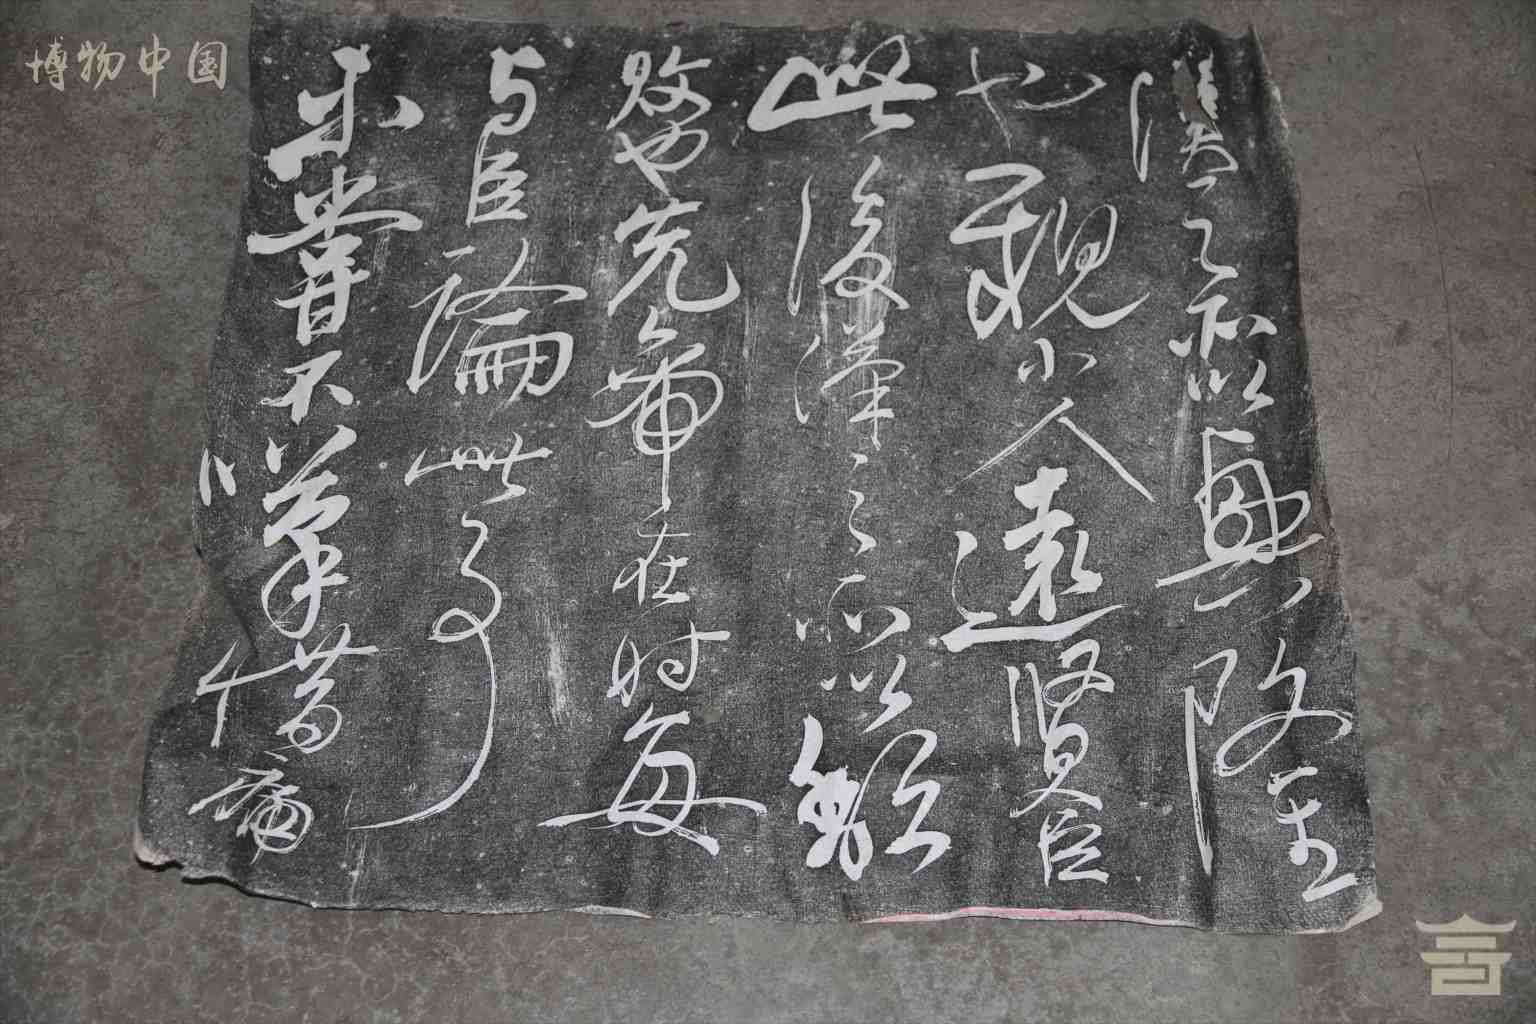 博物中国
漢之所以興隆
也親小人遠賢臣
此後漢之所以頹
敗也先帝在时每
与臣論此事
未嘗不嘆惜痛